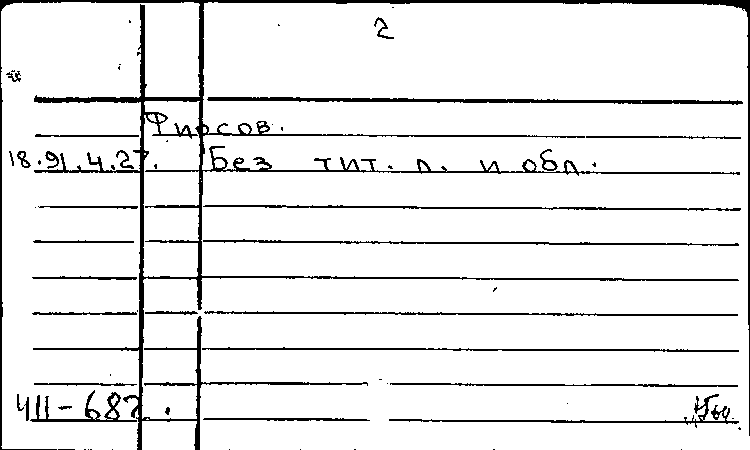 2
Фирсов.
18.91.4.27. Без тит. л. и обл.
411-682.